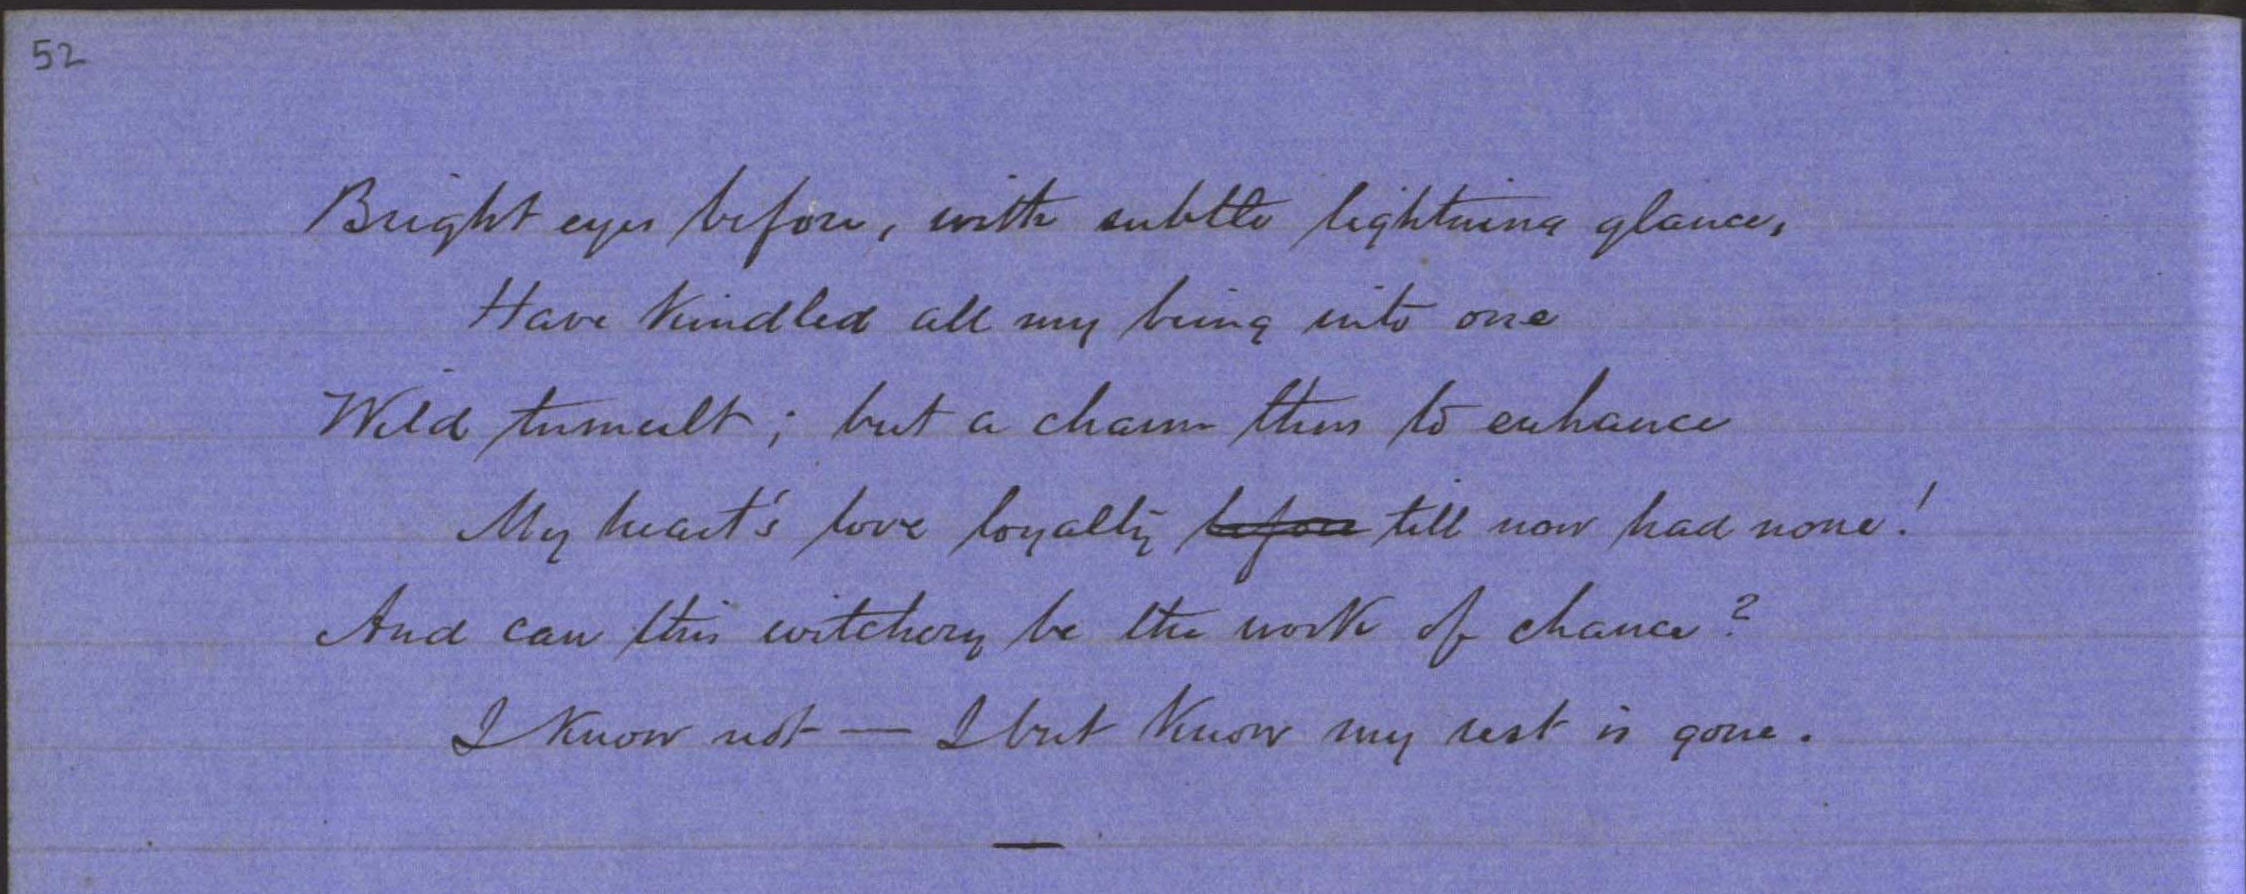 52
Bright eyes before, with subtle lightning glance,
Have kindled all my being into one
Wild tumult; but a charm thus to enhance
My heart's love loyalty ~~before~~ till now had none!
And can this witchery be the work of chance?
I know not — I but know my rest is gone.